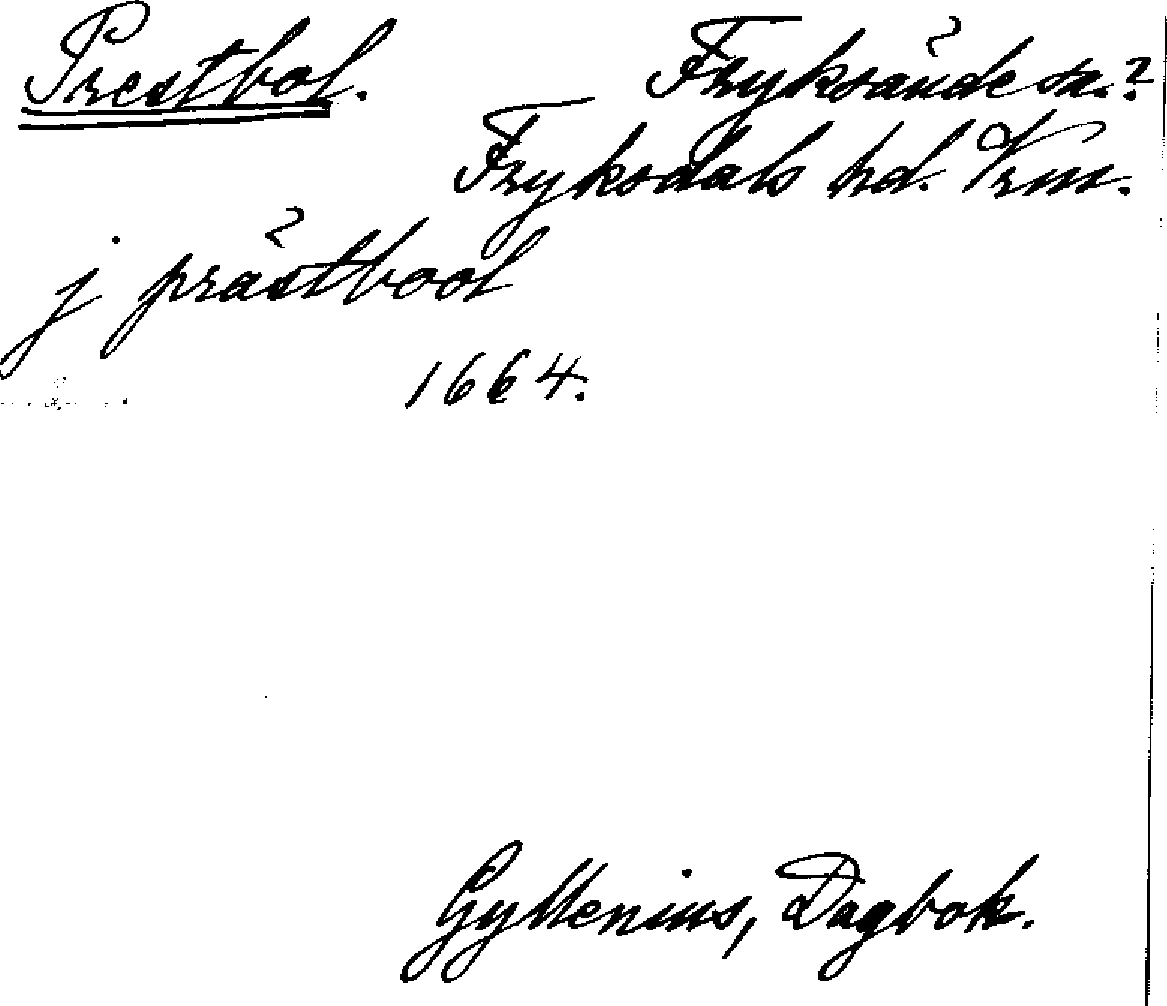 Prestbol. Fryksände sn.?
Fryksdals hd. Vrm.
j prästbool
1664.
Gyllenius, Dagbok.